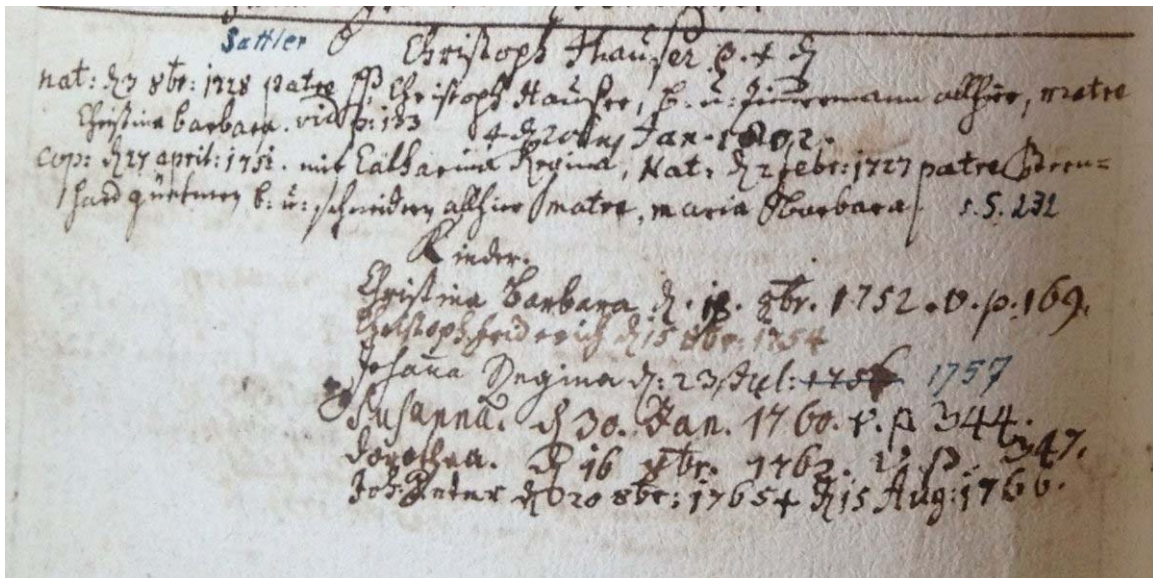 Sattler Christoph Hauser
nat: d 3 8br: 1728 patre Christoph Hauser, b. u. Zimmermann allhier, matre
Christina barbara. vid p: 183 † d 20 Jan. 1802.
Cop: d 27 april: 1751. mit Catharina Regina, Nat: d 2 febr: 1727 patre Bern=
hard b. u: schneider allhier matre, maria Barbara s. S. 232
Kinder.
Christina Barbara d. 18. 8br. 1752. v. p. 169.
Christoph friderich d 15 1754
Johanna Regina d: 23 Jul: 1756 1757
Susanna. d 30. Jan. 1760. v. p 344.
Dorothea. d 16 1762. v. p. 347.
Joh. Peter d 20 8br: 1765 † d 15 Aug: 1766.